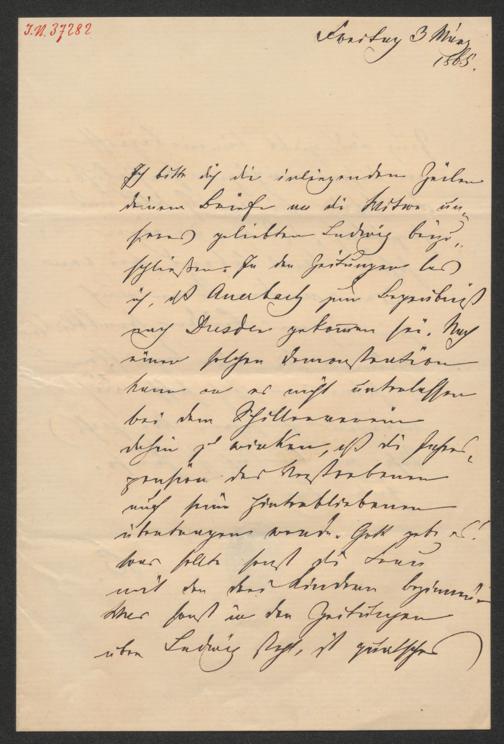 I.N. 37282
Freitag 3 März
1865.
Ich bitte dich die inliegenden Zeilen
deinem Briefe an die Witwe un-
seres geliebten Ludwig beizu-
schließen. In den Zeitungen las
ich, daß Auerbach zum Begräbniß
nach Dresden gekommen sei. Nach
einer solchen Demonstration
kann er es nicht unterlassen
bei dem Schillerverein
dahin zu wirken, daß die Jahres-
pension des Verstorbenen
auf seine Hinterbliebenen
übertragen werde. Gott gebe es!
was sollte sonst die Frau
mit den drei Kindern beginnen
Was sonst in den Zeitungen
über Ludwig steht, ist